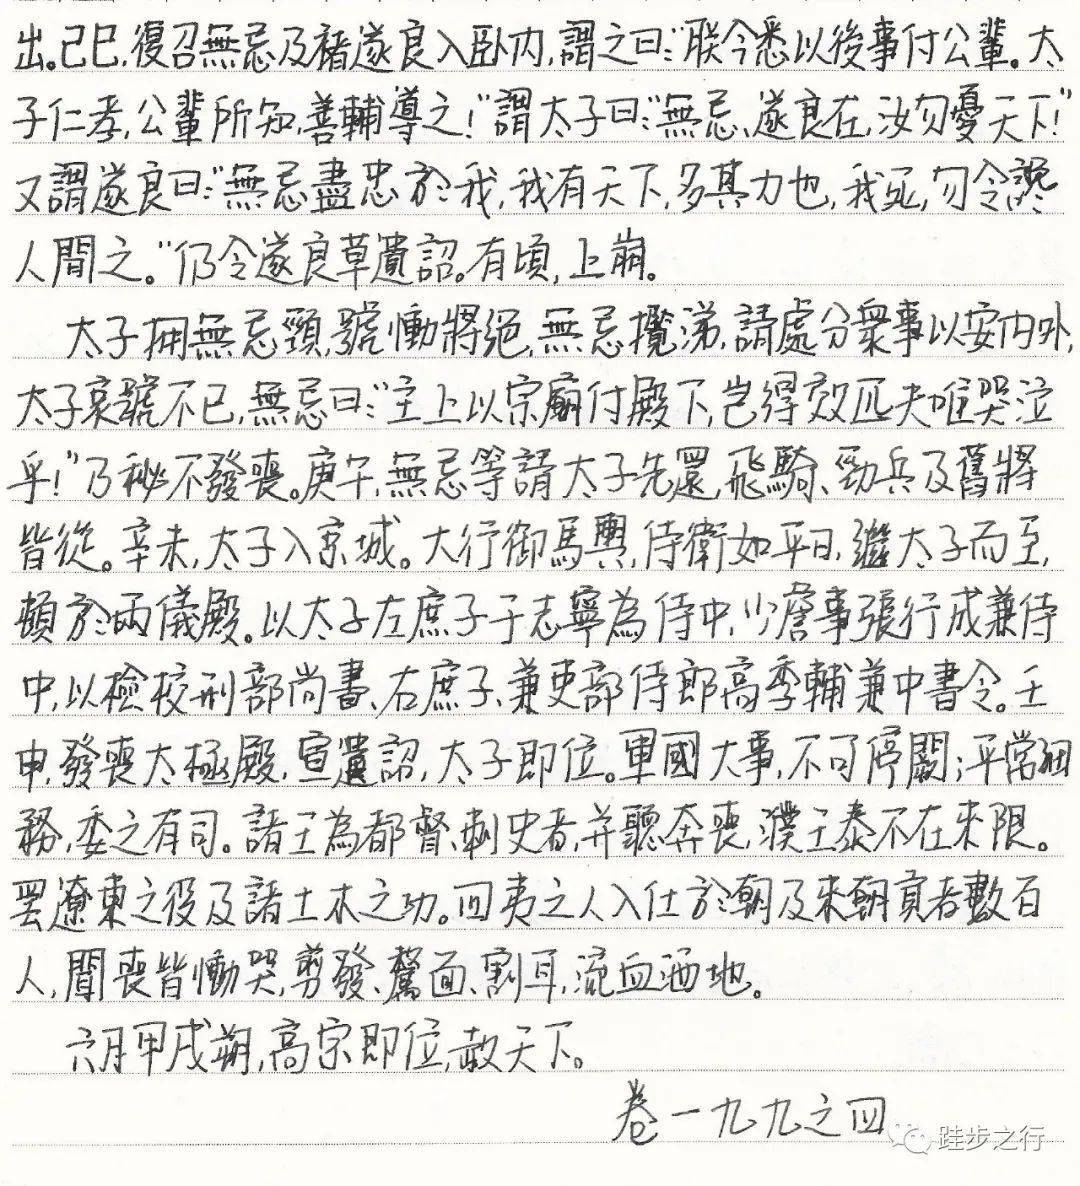 出。己巳，復召無忌及褚遂良入卧内，謂之曰："朕今悉以後事付公輩。太
子仁孝，公輩所知，善輔導之！"謂太子曰："無忌、遂良在，汝勿憂天下！"
又謂遂良曰："無忌盡忠於我，我有天下，多其力也，我死，勿令讒
人間之。"仍令遂良草遺詔。有頃，上崩。
太子擁無忌頸，號慟將絕，無忌攬涕，請處分衆事以安内外，
太子哀號不已，無忌曰："主上以宗廟付殿下，豈得效匹夫唯哭泣
乎！"乃秘不發喪。庚午，無忌等請太子先還，飛騎、勁兵及舊將
皆從。辛未，太子入京城。大行御馬輿，侍衛如平日，繼太子而至，
頓於兩儀殿。以太子左庶子于志寧為侍中，少詹事張行成兼侍
中，以檢校刑部尚書、右庶子、兼吏部侍郎高季輔兼中書令。壬
申，發喪太極殿，宣遺詔，太子即位。軍國大事，不可停闕；平常細
務，委之有司。諸王為都督、刺史者，并聽奔喪，濮王泰不在來限。
罷遼東之役及諸土木之功。四夷之人入仕於朝及來朝貢者數百
人，聞喪皆慟哭，剪發、剺面、割耳，流血洒地。
六月甲戌朔，高宗即位，赦天下。
卷一九九之四
跬步之行